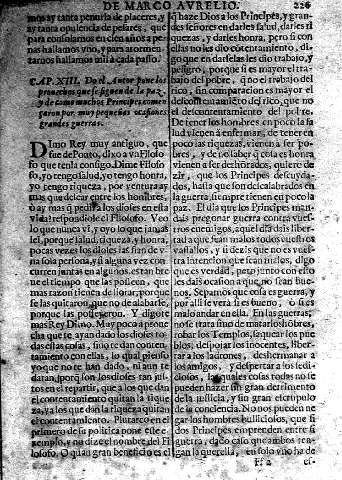 DE MARCO AVRELIO. 226
mos ay tanta penuria de plazeres, y
ay tanta opulencia de pesares, que
para consolarnos en diez años a pe-
nas hallamos vno, y para atormen-
tarnos hallamos mil a cada passo.
CAP. XIII. Do el Autor pone los
prouechos que se siguen de la paz,
y de como muchos Principes comen
çaron por muy pequeñas ocasiones
grandes guerras.
DImo Rey muy antiguo, que
fue de Ponto, dixo a vn Filoso
fo que tenia consigo. Dime Filoso-
fo, yo tengo salud, yo tengo honra,
yo tengo riqueza, por ventura ay
mas que dessear entre los hombres,
o ay mas que pedir a los dioses en esta
vida? respondiole el Filosofo. Veo
lo que nunca vi, y oyo lo que jamas
oi, porque salud, riqueza, y honra,
pocas vezes los dioses las fian de v-
na sola persona, y si alguna vez con-
curren juntas en algunos, es tan bre
ue el tiempo que las posseen, que
mas razon tienen de llorar, porque
se las quitaron, que no de alabarse,
porque las posseyeron. Y digote
mas Rey Dimo. Muy poco aproue
cha que te ayan dado los dioses to-
das essas cosas, sino te dan conten-
tamiento con ellas, lo qual pienso
yo que no te han dado, ni aun te
daran, porque son los dioses tan jus-
tos en el repartir, que a los que dan
el contentamiento quitan la rique-
za, y a los que dan la riqueza quitan
el contentamiento. Plutarco en el
primero de su politica pone este e-
xemplo, y no dize el nombre del Fi
losofo. O quan gran beneficio es el
que haze Dios a los Principes, y gran-
des señores en darles salud, darles ri
quezas, y darles honra, pero si con
ellas no les dio contentamiento, di-
go que en darselas les dio trabajo, y
peligro, porque si es mayor el tra-
bajo del pobre, que no el trabajo del
rico, sin comparacion es mayor el
descontentamiento del rico, que no
el descontentamiento del pobre.
De tener los hombres en poco la sa
lud vienen a enfermar, de tener en
poco las riquezas, vienen a ser po-
bres, y de no saber que cosa es honra
vienen a ser deshonrados, quiero de
zir, que los Principes descuyda-
dos, hasta que son descalabrados en
la guerra siempre tienen en poco la
paz. El dia que los Principes man-
dais pregonar guerra contra vues-
tros enemigos, aquel dia dais liber-
tad a que sean malos todos vuestros
vassallos, y si dezis que no es vues-
tra intencion que sean malos, digo
que es verdad, pero junto con esso
les dais ocasion a que no sean bue-
nos. Sepamos que cosa es guerra, y
por alli se vera si es bueno, o si es
malo andar en ella. En las guerras,
no se trata sino de matar los hõbres,
robar los Templos, saquear los pue
blos, despojar los inocentes, liber-
tar a los ladrones, deshermanar a
los amigos, y despertar a los sedi-
ciosos, las quales cosas todas no se
pueden hazer sin gran detrimento
de la justicia, y sin gran escrupulo
de la conciencia. No nos pueden ne
gar los hombres bulliciosos, que si
dos Principes emprenden entre si
guerra, dado caso que ambos ten-
gan la querella, en solo vno ha de
Ff 2 es-